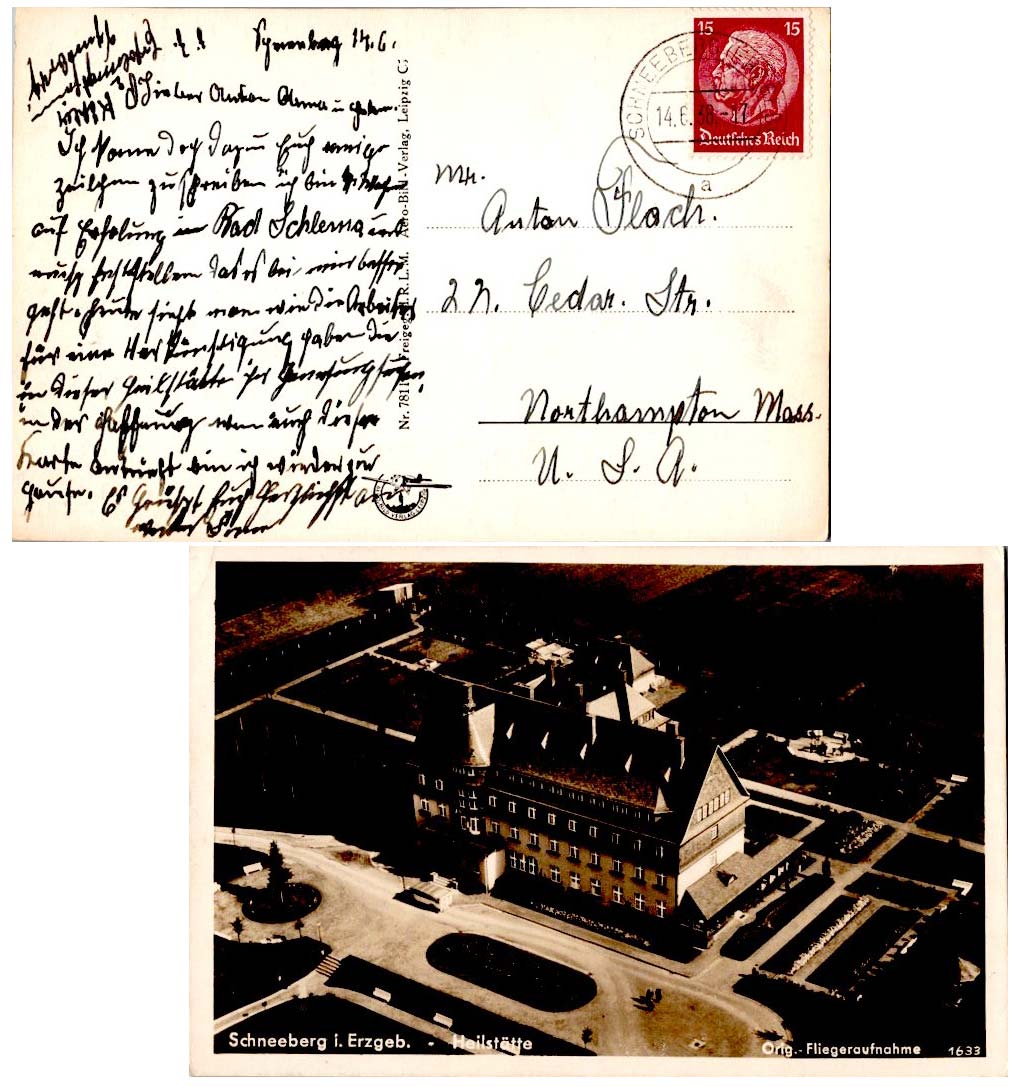 Schneeberg 14.6.
Lieber Anton Anna u
Ich komme doch dazu Euch einige
Zeilchen zu schreiben ich bin 4 Wochen
auf Erholung in Bad Schlema und
muß feststellen das es bei mir besser
geht. Heute sieht man wie die Arbeiter
für eine Vergünstigung haben die
in dieser Heilstätte ihr Genesung suchen
in der Hoffnung wen auch diese
Karte bin ich wieder zur
Hause. Es Grüßt Euch Herzlichst
Nr. 7811 Freigeg. R.L.M. Aero-Bild-Verlag, Leipzig C
15 15
Deutsches Reich
SCHNEEBERG
14.6.38.-17
a
Mr.
Anton Flach.
22. Cedar. Str.
Northampton Mass.
U. S. A.
Schneeberg i. Erzgeb. - Heilstätte
Orig.-Fliegeraufnahme 1633